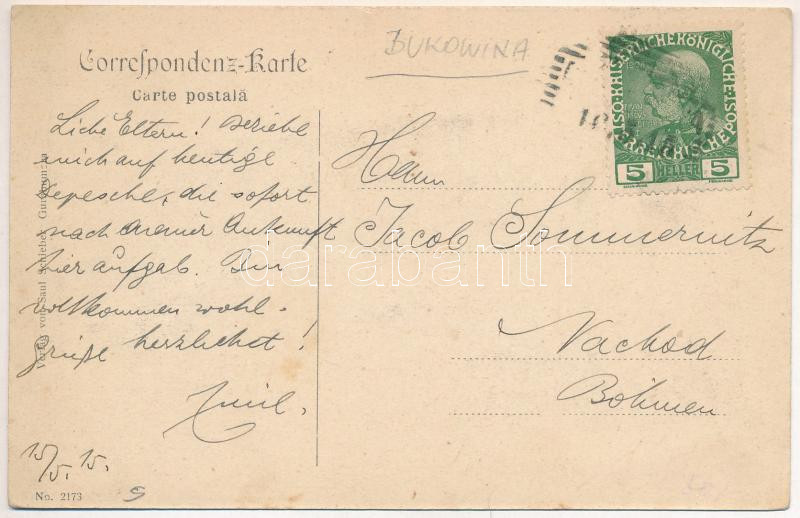 BUKOWINA
Correſpondenz-Karte
Carte postală
Liebe Eltern! Beziehe
mich auf heutige
Depesche, die sofort
nach meiner Ankunft
hier aufgab. Bin
vollkommen wohl.
Grüße herzlichst!
Emil.
15/5. 15.
No. 2173
Verlag von Saul Schieber,
KAISERLICHE KÖNIGLICHE
ÖSTERREICHISCHE POST
5 HELLER 5
Herrn
Jacob Sommernitz
Nachod
Böhmen
darabanth